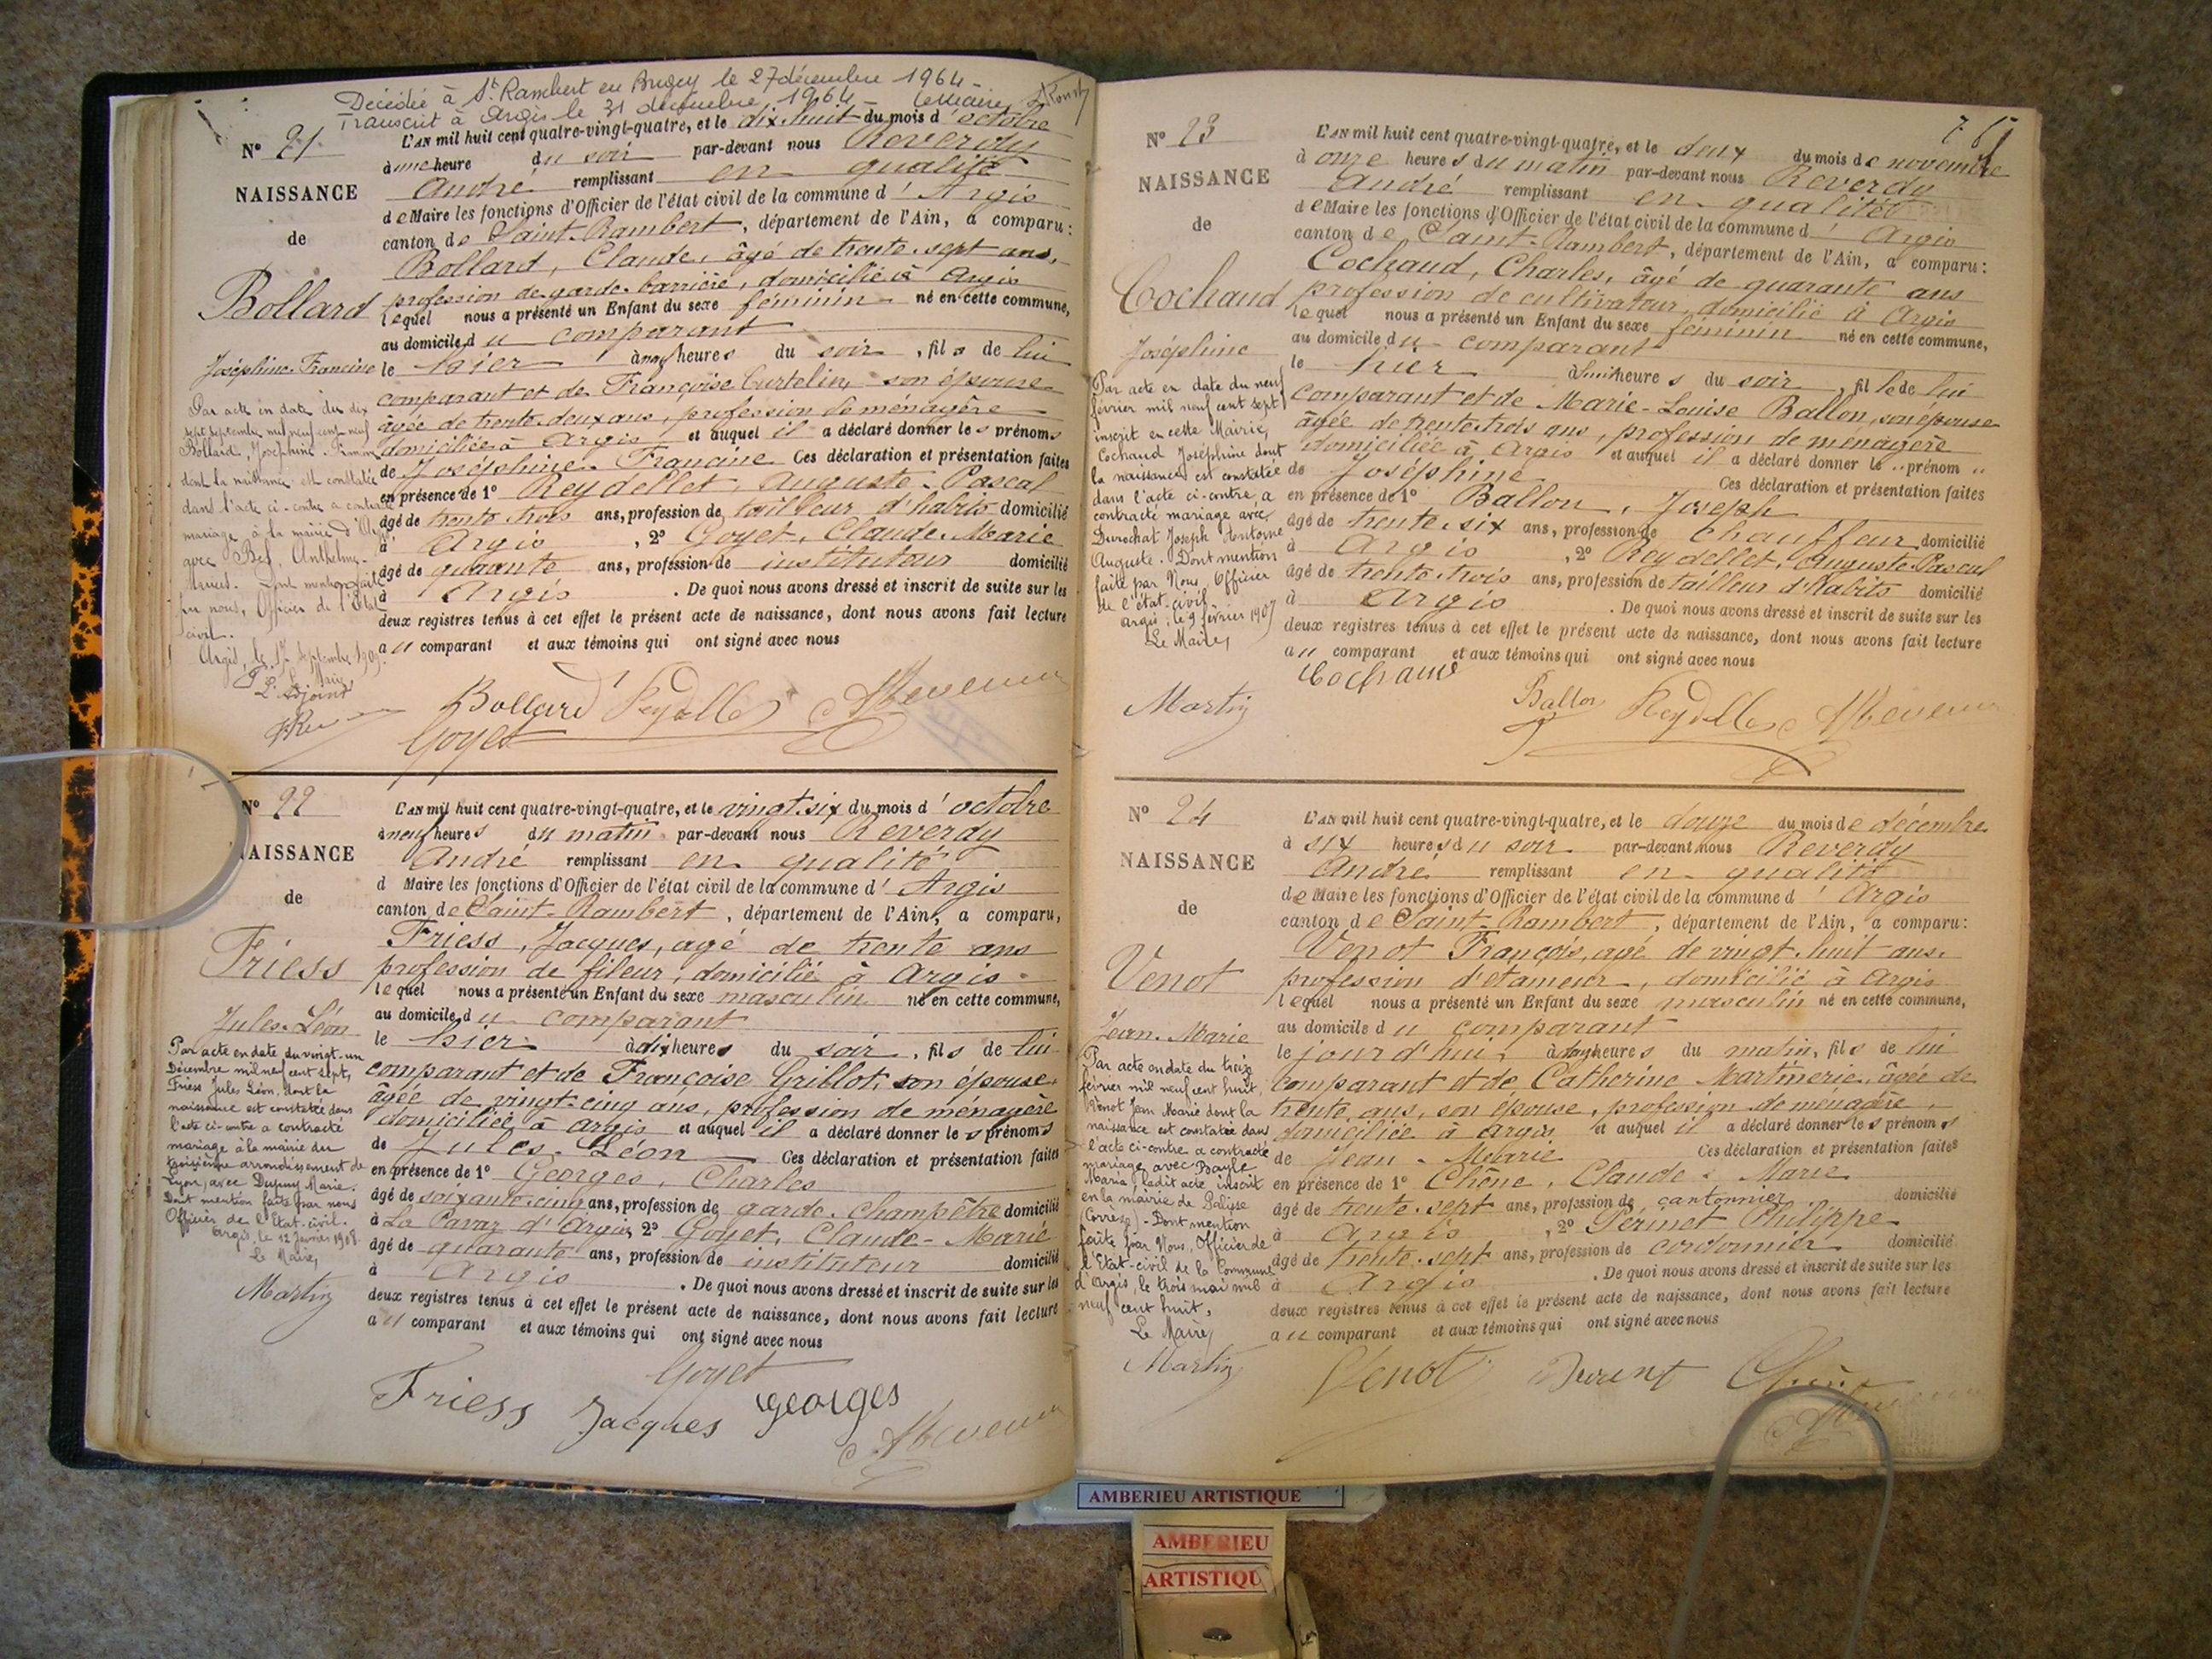 Décédée à St Rambert en Bugey le 27 décembre 1964
Transcrit à Argis le 31 décembre 1964 Le Maire,
N° 21
NAISSANCE
de
Bollard
Joséphine-Francine
Par acte en date du dix
sept septembre mil neuf cent neuf
Bollard, Joséphine
dont la naissance est constatée
dans l'acte ci-contre a contracté
mariage à la mairie d'
avec Anthelme
Dont mention faite
par nous, Officier de l'Etat
civil.
Argis, le 17 septembre 1909.
L'Adjoint
L'AN mil huit cent quatre-vingt-quatre, et le dix-huit du mois d'octobre
à une heure du soir par-devant nous Reverdy
André remplissant en qualité
de Maire les fonctions d'Officier de l'état civil de la commune d'Argis
canton de Saint-Rambert, département de l'Ain, a comparu:
Bollard, Claude, âgé de trente-sept ans,
profession de garde-barrière, domicilié à Argis
lequel nous a présenté un Enfant du sexe féminin né en cette commune,
au domicile du comparant
le hier à heures du soir, fil de lui
comparant et de Françoise Curtelin, son épouse
âgée de trente-deux ans, profession de ménagère
domiciliée à Argis et auquel il a déclaré donner les prénoms
de Joséphine-Francine Ces déclaration et présentation faites
en présence de 1° Reydellet, Auguste-Pascal
âgé de trente-trois ans, profession de tailleur d'habits domicilié
à Argis, 2° Goyet, Claude-Marie
âgé de quarante ans, profession de instituteur domicilié
à Argis. De quoi nous avons dressé et inscrit de suite sur les
deux registres tenus à cet effet le présent acte de naissance, dont nous avons fait lecture
au comparant et aux témoins qui ont signé avec nous
Bollard
Goyet
N° 22
NAISSANCE
de
Friess
Jules-Léon
Par acte en date du vingt-un
Décembre mil neuf cent sept,
Friess Jules Léon, dont la
naissance est constatée dans
l'acte ci-contre a contracté
mariage à la mairie du
troisième arrondissement de
Lyon, avec Dupuy Marie.
Dont mention faite par nous
Officier de l'Etat-civil.
Argis, le 12 Janvier 1908.
Le Maire,
Martin
L'AN mil huit cent quatre-vingt-quatre, et le vingt-six du mois d'octobre
à neuf heures du matin par-devant nous Reverdy
André remplissant en qualité
d Maire les fonctions d'Officier de l'état civil de la commune d'Argis
canton de Saint-Rambert, département de l'Ain, a comparu,
Friess, Jacques, agé de trente ans
profession de fileur, domicilié à Argis
lequel nous a présenté un Enfant du sexe masculin né en cette commune,
au domicile du comparant
le hier à dix heures du soir, fils de lui
comparant et de Françoise Griblot, son épouse,
âgée de vingt-cinq ans, profession de ménagère
domiciliée à Argis et auquel il a déclaré donner les prénoms
de Jules-Léon Ces déclaration et présentation faites
en présence de 1° Georges, Charles
âgé de soixante-cinq ans, profession de garde-champêtre domicilié
à La Pavaz d'Argis, 2° Goyet, Claude-Marie
âgé de quarante ans, profession de instituteur domicilié
à Argis. De quoi nous avons dressé et inscrit de suite sur les
deux registres tenus à cet effet le présent acte de naissance, dont nous avons fait lecture
au comparant et aux témoins qui ont signé avec nous
Goyet
Friess Jacques Georges
N° 23
NAISSANCE
de
Cochaud
Joséphine
Par acte en date du neuf
février mil neuf cent sept
inscrit en cette Mairie,
Cochaud Joséphine dont
la naissance est constatée
dans l'acte ci-contre, a
contracté mariage avec
Durochat Joseph Antoine
Auguste. Dont mention
faite par Nous, Officier
de l'état-civil
Argis, le 9 février 1907
Le Maire,
Martin
L'AN mil huit cent quatre-vingt-quatre, et le deux du mois de novembre
à onze heures du matin par-devant nous Reverdy
André remplissant en qualité
de Maire les fonctions d'Officier de l'état civil de la commune d'Argis
canton de Saint-Rambert, département de l'Ain, a comparu:
Cochaud, Charles, âgé de quarante ans
profession de cultivateur, domicilié à Argis
lequel nous a présenté un Enfant du sexe féminin né en cette commune,
au domicile du comparant
le hier à huit heures du soir, fille de lui
comparant et de Marie-Louise Ballon, son épouse
âgée de trente-trois ans, profession de ménagère
domiciliée à Argis et auquel il a déclaré donner le " prénom "
de Joséphine Ces déclaration et présentation faites
en présence de 1° Ballon, Joseph
âgé de trente-six ans, profession de chauffeur domicilié
à Argis, 2° Reydellet, Auguste-Pascal
âgé de trente-trois ans, profession de tailleur d'habits domicilié
à Argis. De quoi nous avons dressé et inscrit de suite sur les
deux registres tenus à cet effet le présent acte de naissance, dont nous avons fait lecture
au comparant et aux témoins qui ont signé avec nous
Cochaud
Ballon
N° 24
NAISSANCE
de
Venot
Jean-Marie
Par acte en date du treize
février mil neuf cent huit,
Venot Jean Marie dont la
naissance est constatée dans
l'acte ci-contre a contracté
mariage avec Bayle
Maria, ladit acte inscrit
en la mairie de Palisse
(Corrèze) - Dont mention
faite par Nous, Officier de
l'Etat-civil de la Commune
d'Argis le trois mai mil
neuf cent huit,
Le Maire,
Martin
L'AN mil huit cent quatre-vingt-quatre, et le douze du mois de décembre
à six heures du soir par-devant nous Reverdy
André remplissant en qualité
de Maire les fonctions d'Officier de l'état civil de la commune d'Argis
canton de Saint-Rambert, département de l'Ain, a comparu:
Venot François, agé de vingt-huit ans.
profession d'étameur, domicilié à Argis
lequel nous a présenté un Enfant du sexe masculin né en cette commune,
au domicile du comparant
le jour d'hui, à heures du matin, fils de lui
comparant et de Catherine Martinerie, âgée de
trente ans, son épouse, profession de ménagère,
domiciliée à Argis et auquel il a déclaré donner les prénoms
de Jean-Marie Ces déclaration et présentation faites
en présence de 1° Chêne, Claude-Marie
âgé de trente-sept ans, profession de cantonnier domicilié
à Argis, 2° Permet Philippe
âgé de trente-sept ans, profession de cordonnier domicilié
à Argis. De quoi nous avons dressé et inscrit de suite sur les
deux registres tenus à cet effet le présent acte de naissance, dont nous avons fait lecture
au comparant et aux témoins qui ont signé avec nous
Venot
AMBERIEU ARTISTIQUE
AMBERIEU
ARTISTIQU